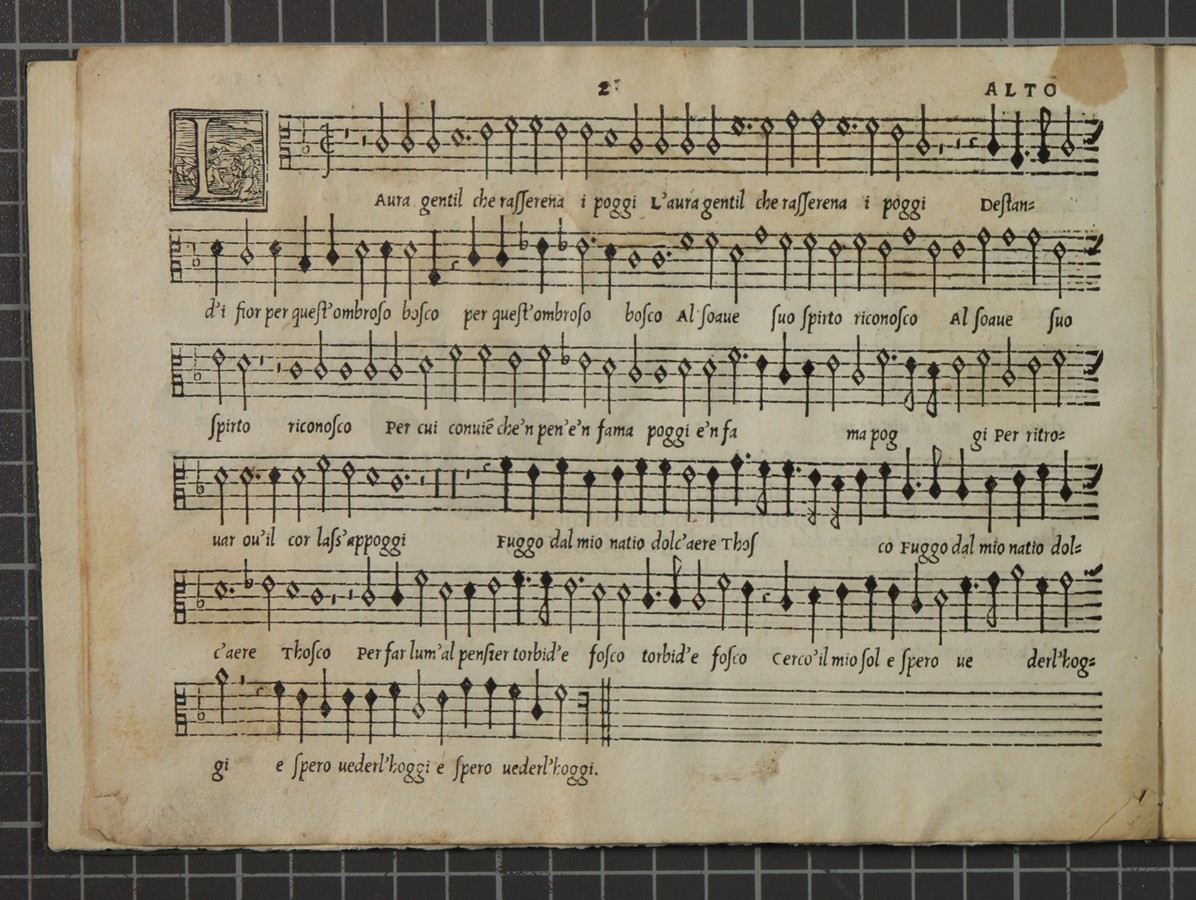 2 ALTO
L Aura gentil che rasserena i poggi L'aura gentil che rasserena i poggi Destan=
d'i fior per quest'ombroso bosco per quest'ombroso bosco Al soaue suo spirto riconosco Al soaue suo
spirto riconosco Per cui conuiē che'n pen'e'n fama poggi e'n fa ma pog gi Per ritro=
uar ou'il cor lass'appoggi Fuggo dal mio natio dolc'aere Thos co Fuggo dal mio natio dol=
c'aere Thosco Per far lum'al pensier torbid'e fosco torbid'e fosco Cerco'il mio sol e spero ue derl'hog=
gi e spero uederl'hoggi e spero uederl'hoggi.